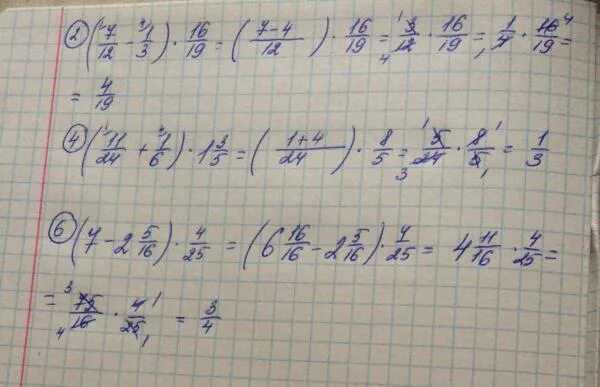 ② (7/12 - 1/3) · 16/19 = (7-4/12) · 16/19 = 3/12 · 16/19 = 1/4 · 16/19 =
= 4/19
④ (11/24 + 1/6) · 1 3/5 = (1+4/24) · 8/5 = 5/24 · 8/5 = 1/3
⑥ (7 - 2 5/16) · 4/25 = (6 16/16 - 2 5/16) · 4/25 = 4 11/16 · 4/25 =
= 75/16 · 4/25 = 3/4